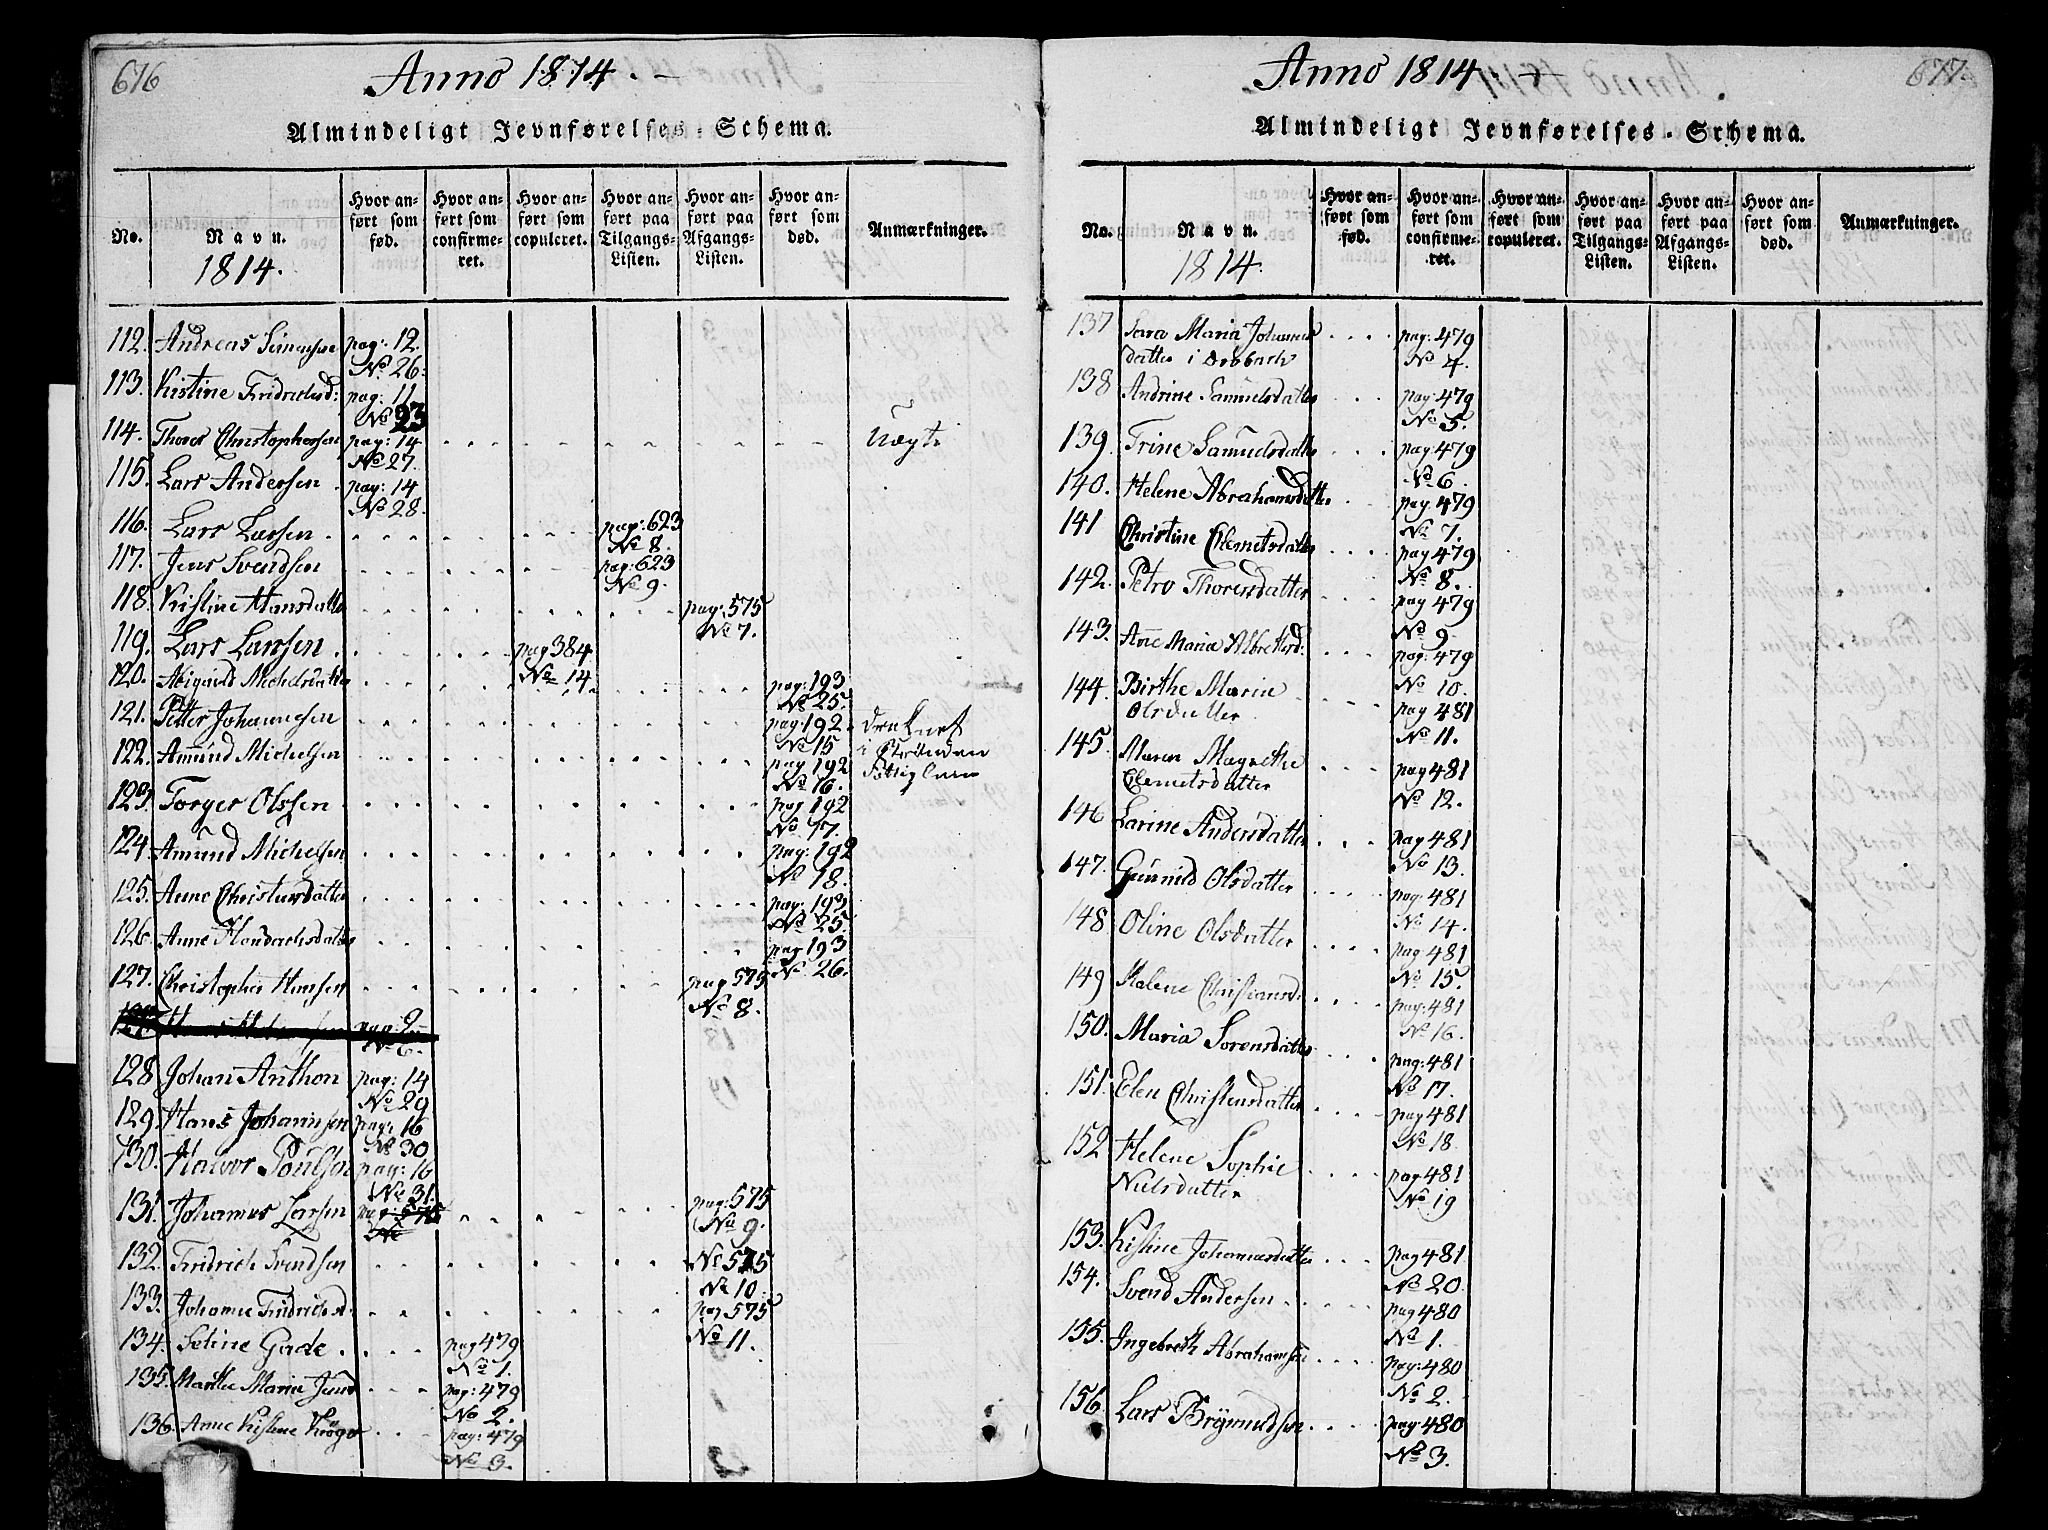 676
Anno 1814. -
Almindeligt Jevnførelses-Schema.
No. Navn. 1814. Hvor anført som fød. Hvor anført som confirmeret. Hvor anført som copuleret. Hvor anført paa Tilgangs-Listen. Hvor anført paa Afgangs-Listen. Hvor anført som død. Anmærkninger.
112. Andreas Simensen pag: 12.
No 26.
113. Kistine Fridrichsd: pag: 11
No 23
114. Thorer Christophersen pag: 14 Uægte
No 27.
115. Lars Andersen pag: 14
No 28.
116. Lars Larsen pag: 623
No 8.
117. Jens Svendsen pag: 623
No 9.
118. Kistine Hansdatter pag: 575
No 7.
119. Lars Larssen pag 384
No 14.
120. Abigaild Michelsdatter pag: 193
No 25.
121. Petter Johannesen pag: 192
No 15
122. Amund Michelsen pag 192
No 16.
123. Torger Olssen pag 192
No 17.
124. Amund Michelsen pag: 192
No 18.
125. Anne Christensdatter pag: 193
No 25.
126. Anne pag 193
No 26.
127. Christopher Hansen pag 575
No 8.
pag: 9
No 6.
128 Johan Anthon pag: 14
No 29
129. Hans Johannsen pag: 16
No 30
130. Halvor Poulsen pag: 16
No 31.
131. Johannes Larsen pag: 575 pag: 575
No No 9.
132. Fridrich Svendsen No 575
No 10
133. Johanne Fridrichsd. pag 575
No 11.
134. Seline Gade. pag 479
No 1.
135. Marthe Maria Juul pag: 479
No 2.
136. Anne Kistene Krøger pag: 479
No 3.
677.
Anno 1814. -
Almindeligt Jevnførelses-Schema.
No. Navn. 1814. Hvor anført som fød. Hvor anført som confirmeret. Hvor anført som copuleret. Hvor anført paa Tilgangs-Listen. Hvor anført paa Afgangs-Listen. Hvor anført som død. Anmærkninger.
137 Sara Maria Johannes pag: 479
datter i Drøbach No 4.
138 Andrine Samuelsdatter pag: 479
No 5.
139. Trine Samuelsdatter pag: 479
No 6
140. Helene Abrahamsdatter pag 479
No 7.
141 Christine Clemetsdatter pag 479
No 8.
142. Petro Thoresdatter pag 479
No 9
143. Anne Maria Albretsd: pag: 479
No 10.
144. Birthe Maria pag 481
Olsdatter No 11.
145. Maren Magrethe pag 481
Clemetsdatter No 12.
146 Larine Andersdatter pag 481
No 13.
147. Gunnild Olsdatter pag: 481
No 14.
148 Oline Olsdatter pag 481
No 15.
149 Malene Christiansd. pag: 481
No 16.
150. Maria Sørensdatter pag: 481
No 17.
151. Elen Christensdatter pag 481
No 18
152 Helene Sophie pag 481
Nielsdatter No 19
153. Kistine Johannesdatter pag 481
No 20.
154. Svend Andersen pag 480
No 1.
155. Ingebreth Abrahamsen pag: 480
No 2.
156 Lars Brynnildsen pag: 480
No 3.